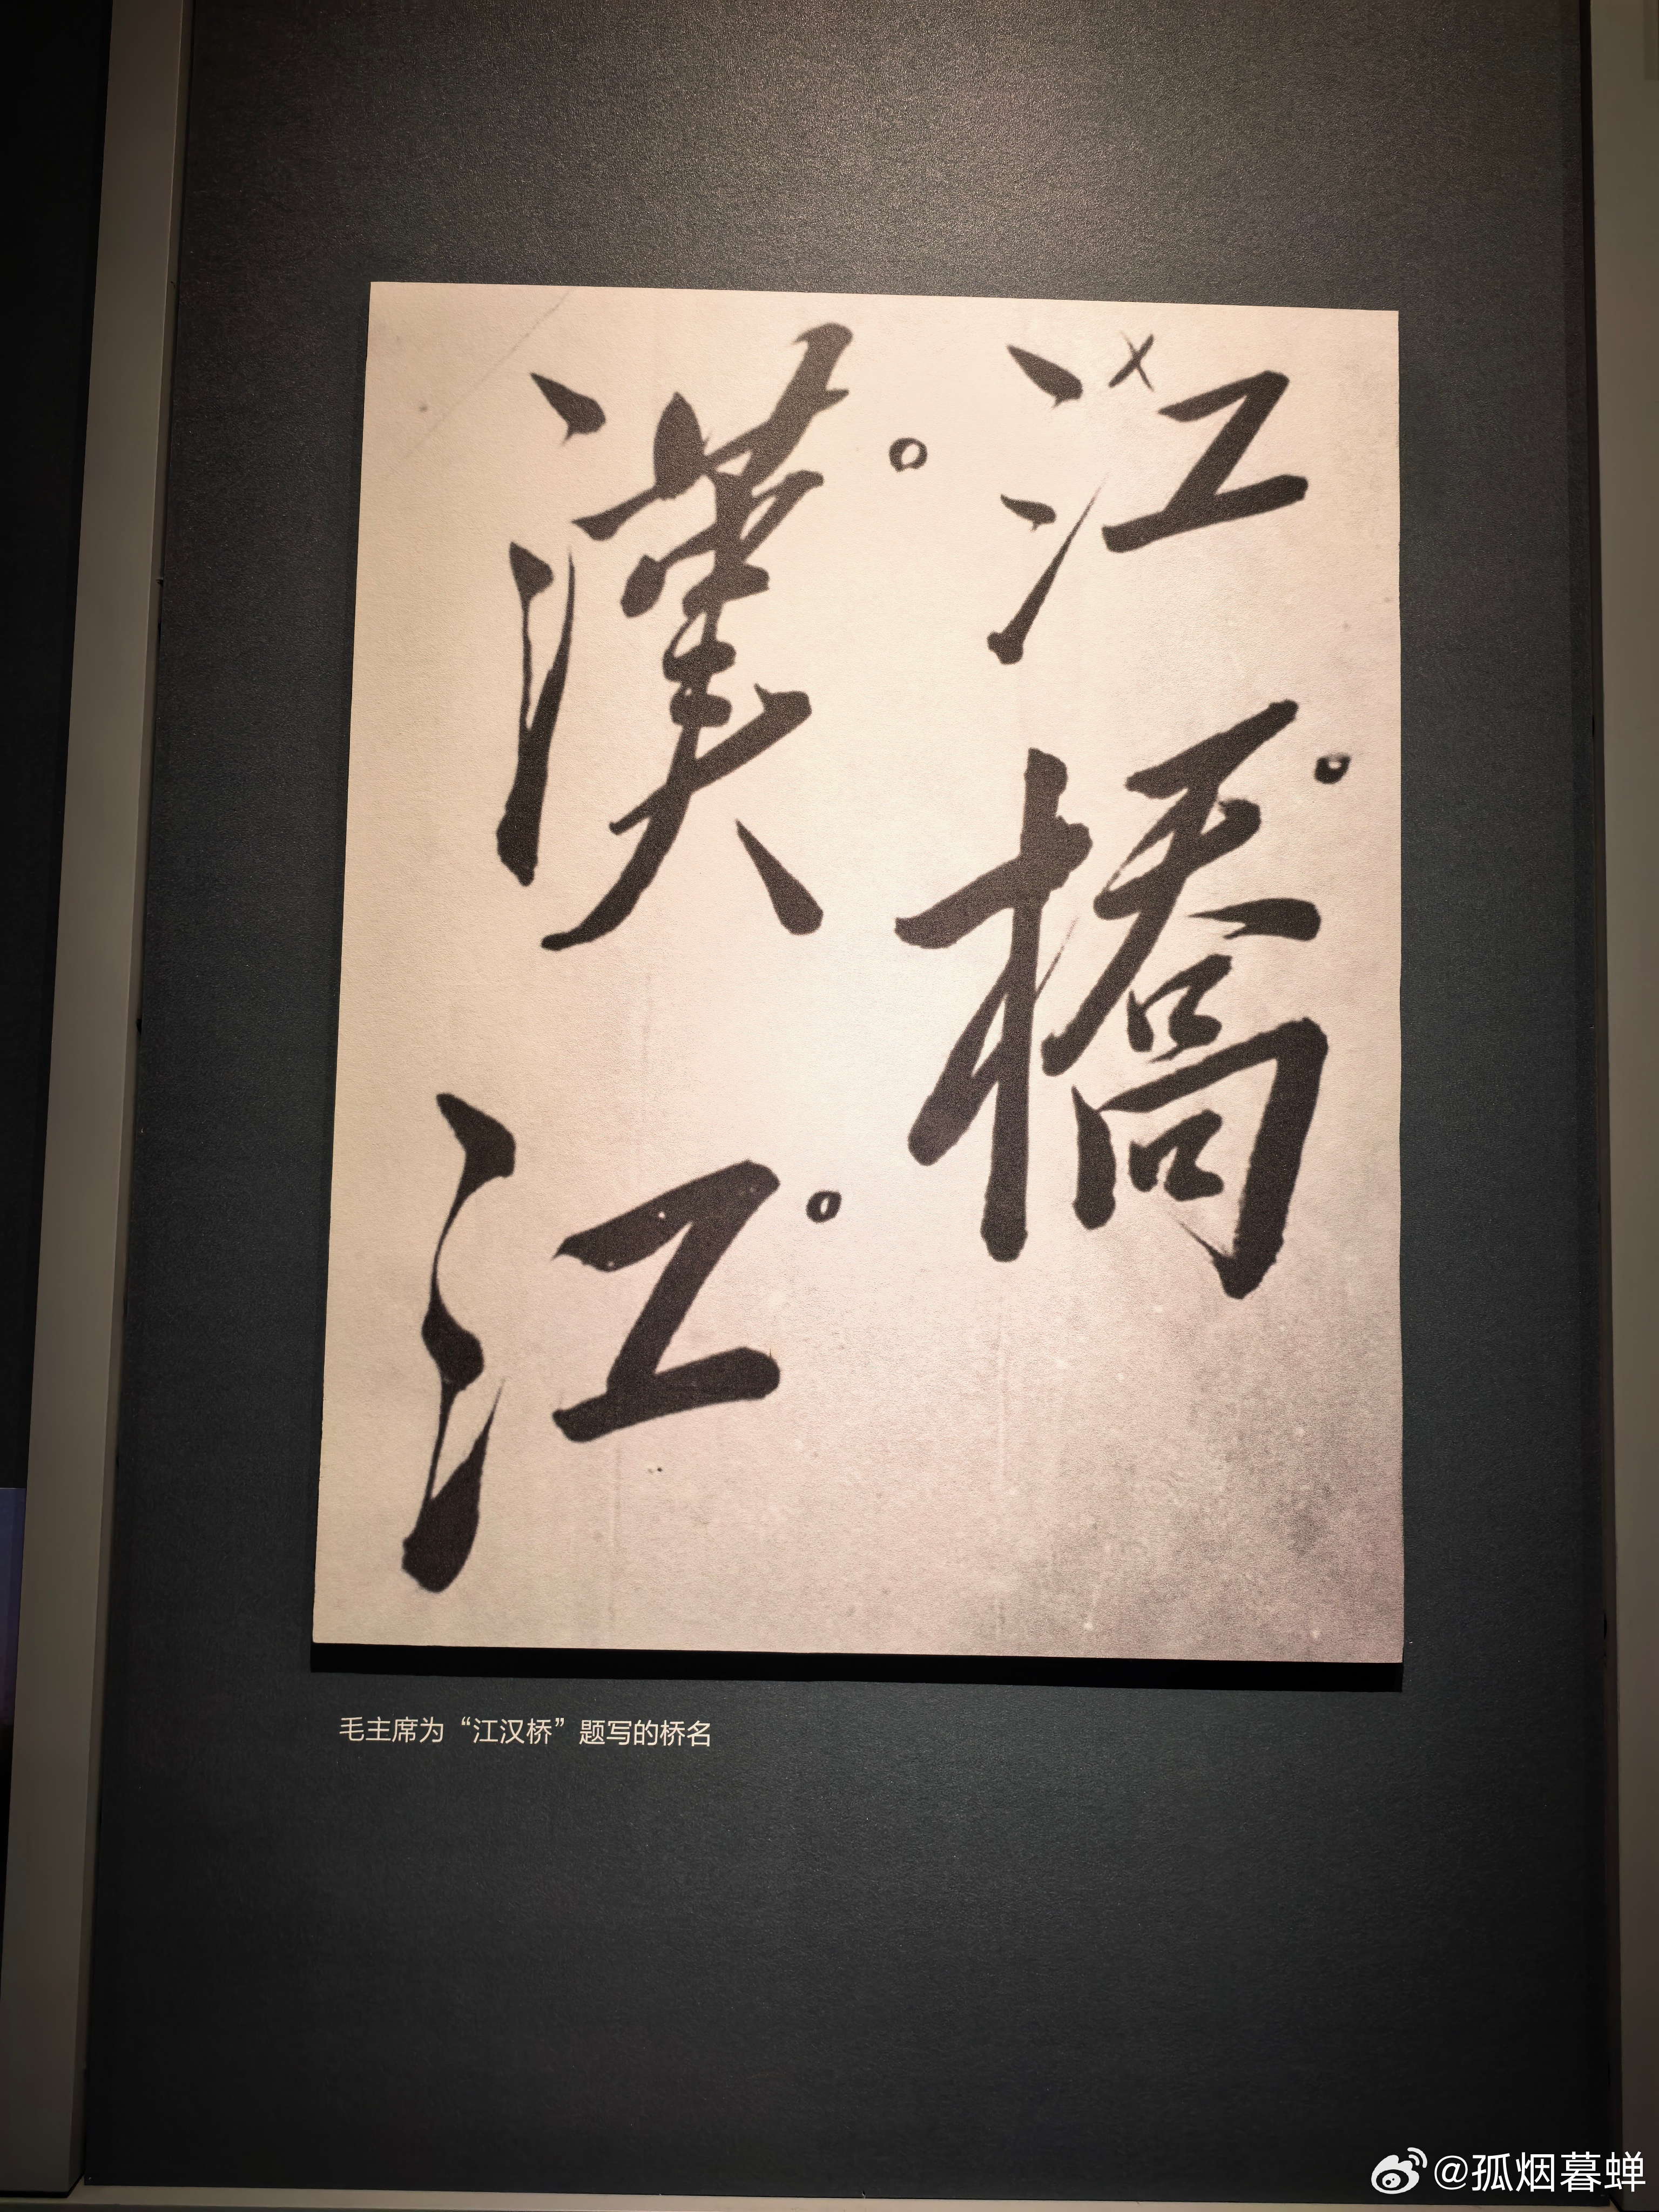 江橋
漢江
毛主席为“江汉桥”题写的桥名
@孤烟暮蝉